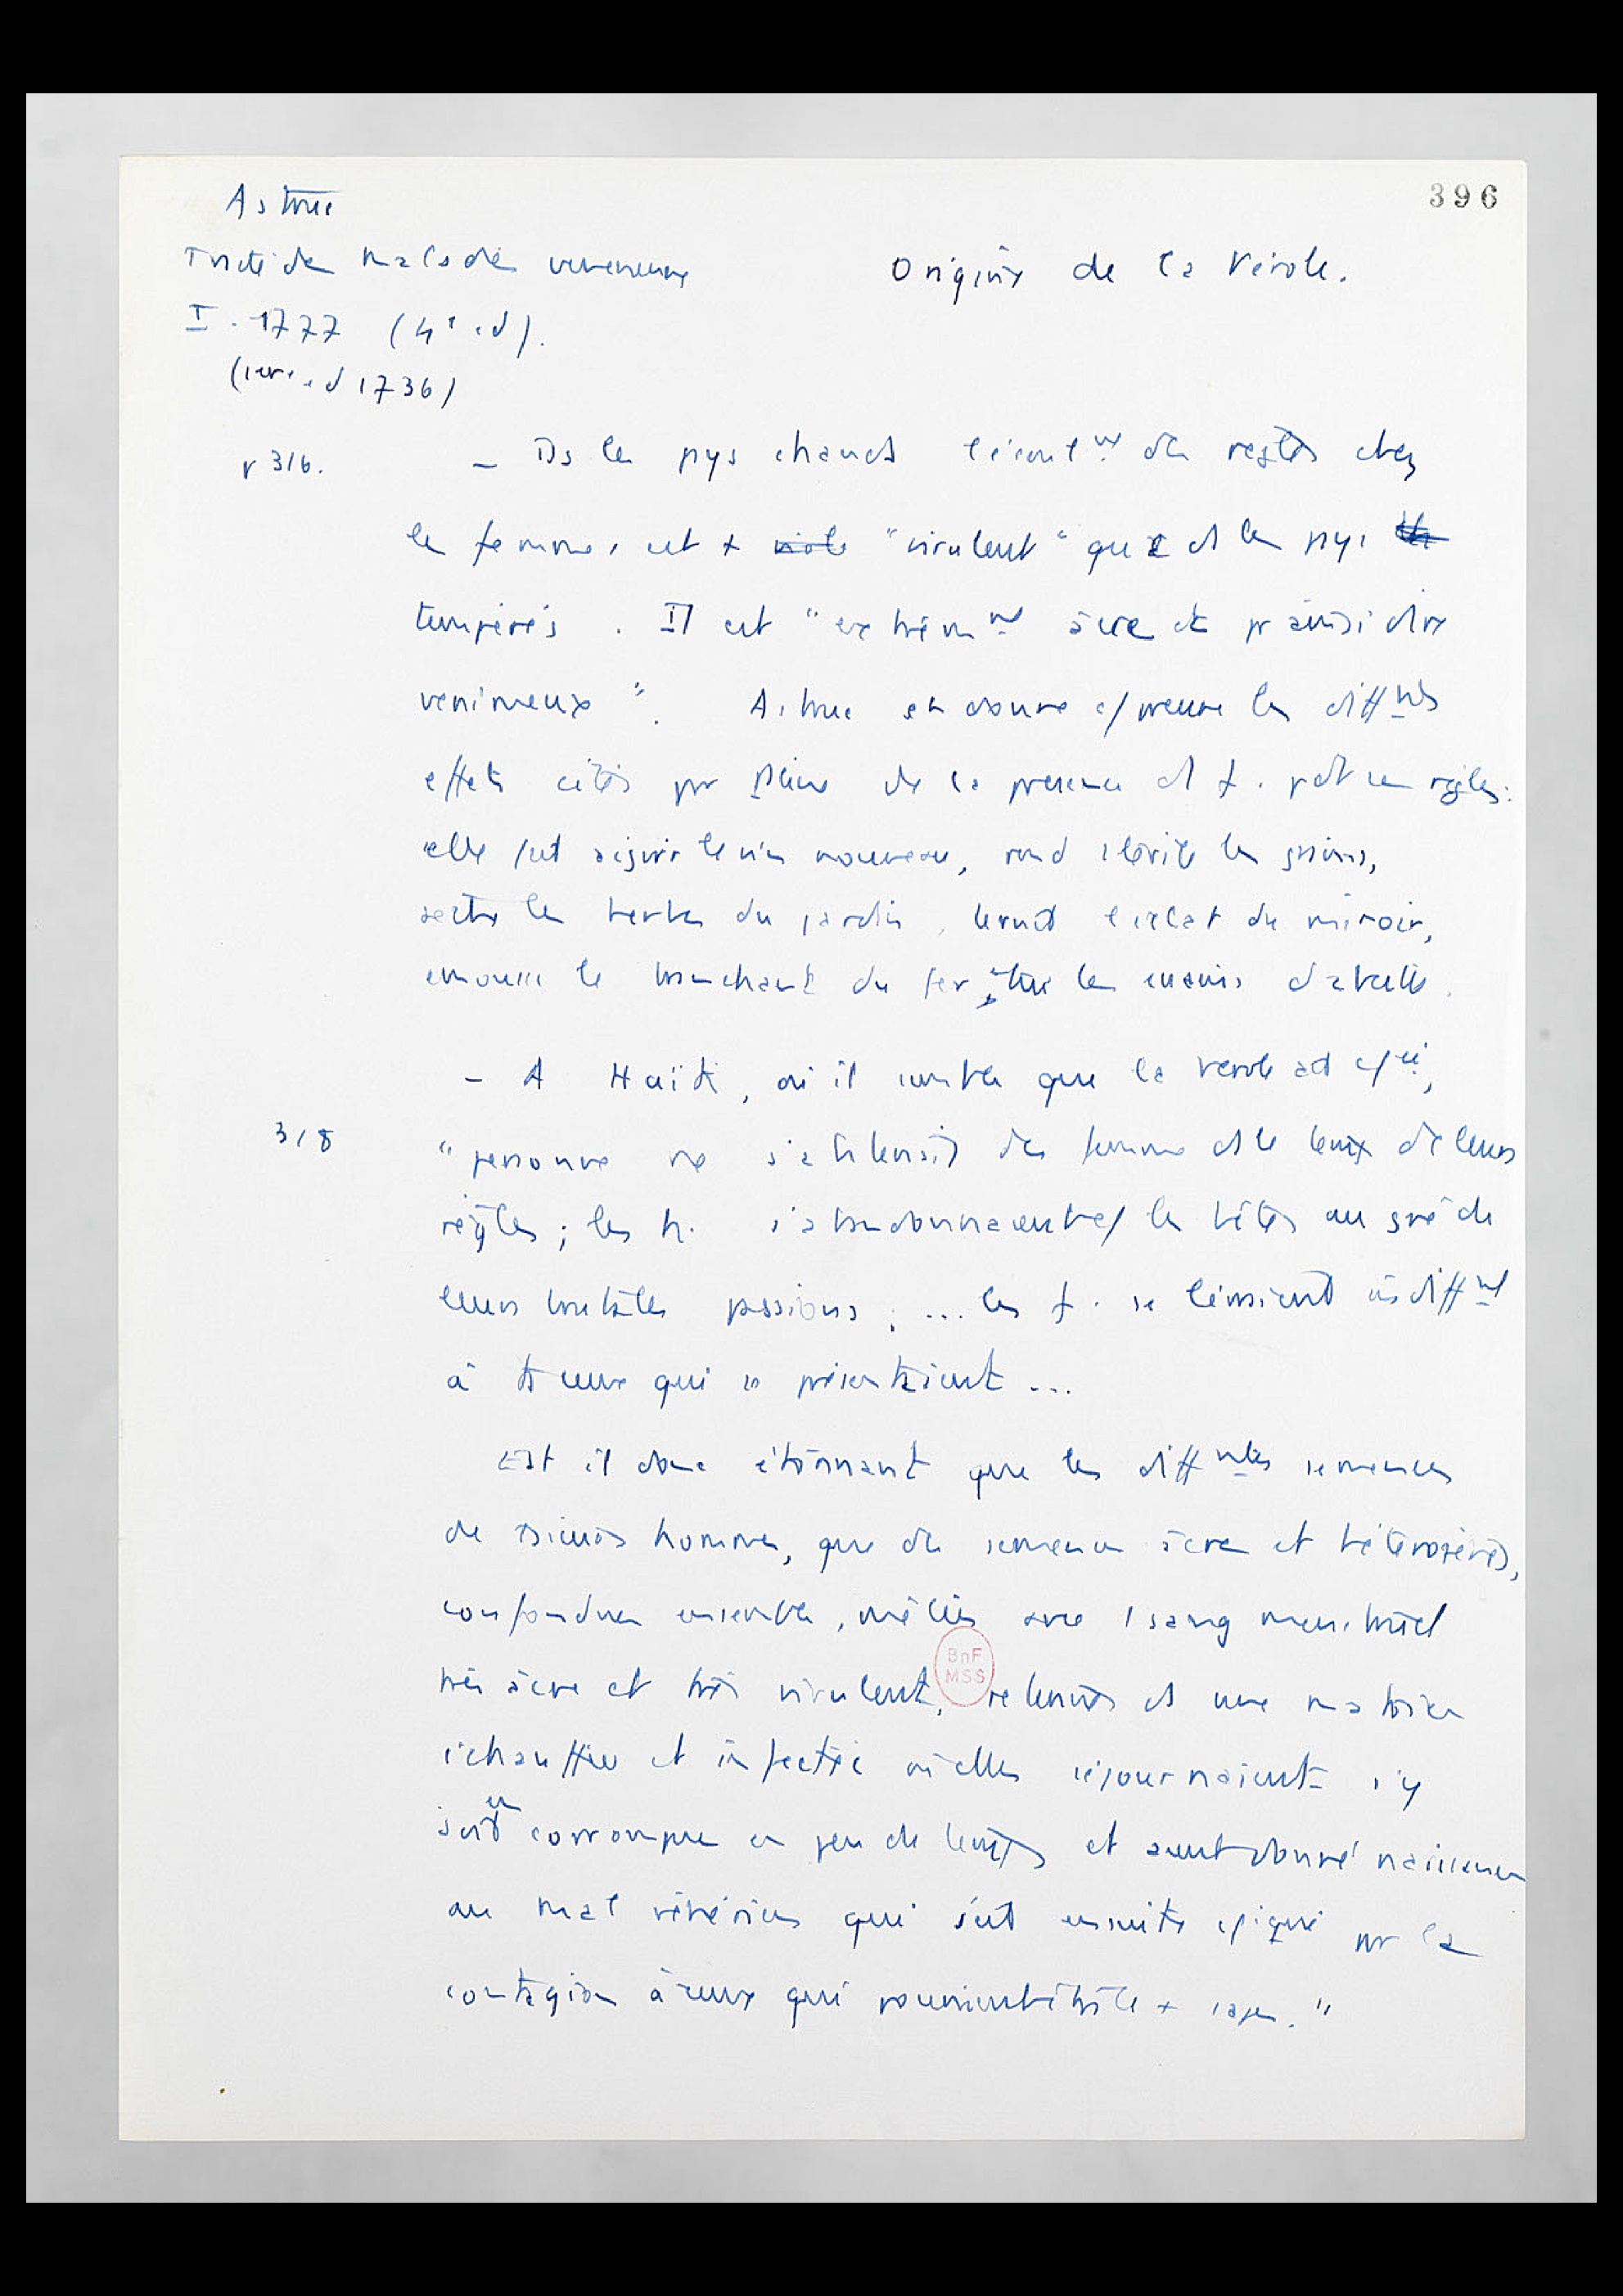 Astruc
396
Traité des maladies veneriennes
Origine de la Vérole.
I. 1777 (4e ed).
(1ere ed 1736)
p 316.
– Ds les pays chauds l'écoult des règles chez
les femmes est + viole "virulent" que ds les pays
tempérés. Il est "extrêmt âcre et pr ainsi dire
venimeux". Astruc en donne c/ preuve les diffnts
effets cités par Pline de la presence ds f. pdt ces règles:
"elle fait aigrir le vin nouveau, rend stérile les grains,
sèche les herbes du jardin, ternit l'éclat du miroir,
émousse le tranchant du fer, tue les essaims d'abeilles.
– A Haïti, où il semble que la vérole ait c/cé,
318
"personne ne s'abstenait des femmes ds le temps de leurs
règles; les h. s'abandonnaient c/ les bêtes au gré de
leurs brutales passions; ... les f. se livraient indiffnt
à ts ceux qui se présentaient ...
Est il donc étonnant que les diffntes semences
de plusieurs hommes, que des semences âcres et hétérogènes,
confondues ensemble, mêlées avec 1 sang menstruel
très âcre et très virulent, retenues ds une matrice
échauffée et infectée où elles séjournaient s'y
soient corrompues en peu de temps et aient donné naissance
au mal vénérien qui s'est ensuite c/iqué par la
contagion à ceux qui pouvaient être + sages."
BnF
MSS